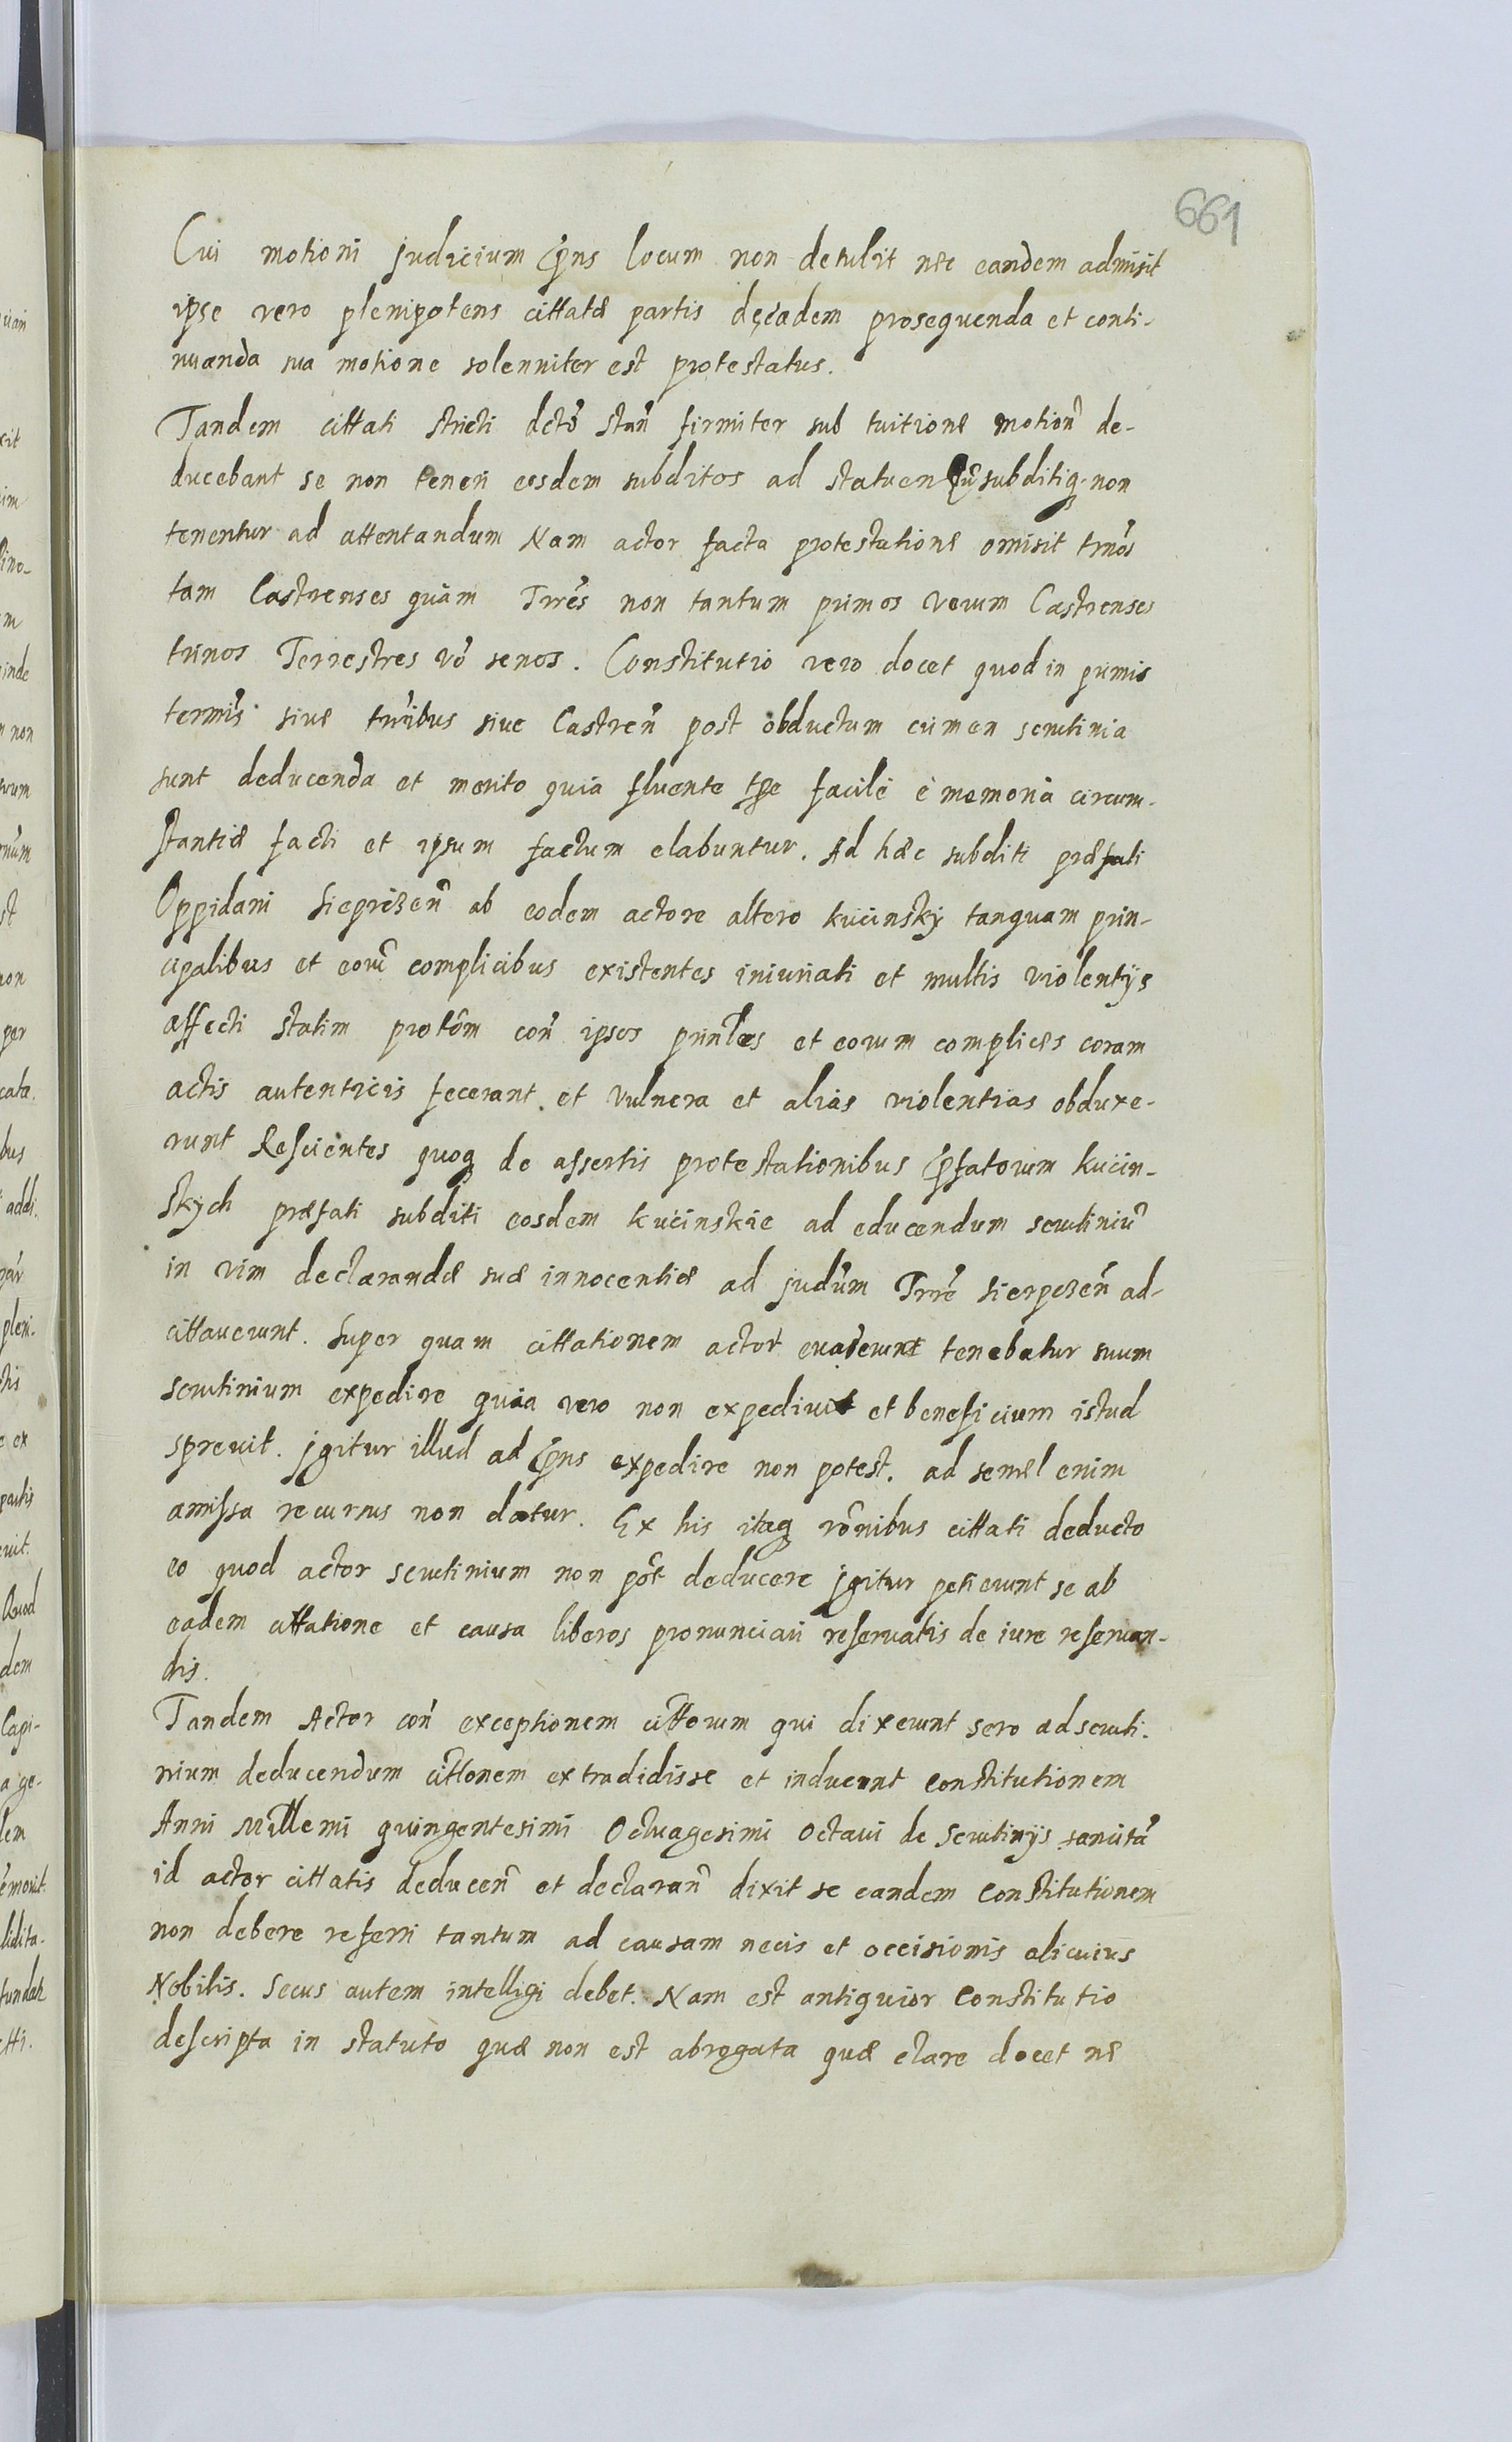 661
Cui motioni judicium p̃ns locum non detulit nec eandem admisit
ipse vero plenipotens cittatæ partis de eadem prosequenda et conti-
nuanda sua motione solenniter est protestatus.
Tandem cittati stricti dcto stañ firmiter sub tuitione motioñ de-
ducebant se non teneri eosdem subditos ad statuen subditiq. non
tenentur ad attentandum Nam actor facta protestatione omisit trños
tam Castrenses quam Trrēs non tantum primos verum Castrenses
trinos Terrestres vō senos. Constitutio vero docet quod in primis
termīs sive trrībus sive Castreñ post obductum crimen scrutinia
sunt deducenda et merito quia fluente tpe facile è memoria circum-
stantiæ facti et ipsum factum elabuntur. Ad hæc subditi præfati
Oppidani Sieprizeñ ab eodem actore altero kucinsky tanquam prin-
cipalibus et eorū complicibus existentes iniuriati et multis violentijs
affecti statim protōm coñ ipsos prinłes et eorum complices coram
actis autenticis fecerant et vulnera et alias violentias obduxe-
runt Rescientes quoq de assertis protestationibus p̃fatorum kucin-
skych præfati subditi eosdem kucinskie ad educendum scrutiniū
in vim declarandæ suæ innocentiæ ad judūm Trrē Sierpszeñ ad-
cittaverunt. Super quam cittationem actor tenebatur suum
scrutinium expedire quia vero non expedivit et beneficium istud
sprevit. jgitur illud ad p̃ns expedire non potest. ad semel enim
amissa recursus non datur. Ex his itaq rōnibus cittati deducto
eo quod actor scrutinium non pōt deducere jgitur petierunt se ab
eadem cittatione et causa liberos pronunciari reservatis de iure reservan-
dis.
Tandem Actor coñ exceptionem cittōrum qui dixerunt sero ad scruti-
nium deducendum cittōnem extradidisse et induerunt constitutionem
Anni Millemi quingentesimi Octuagesimi octavi de Scrutinijs sancitā
id actor cittatis deduceñ et declarañ dixit se eandem Constitutionem
non debere referri tantum ad causam necis et occisionis alicuius
Nobilis. Secus autem intelligi debet. Nam est antiquior Constitutio
descripta in statuto quæ non est abrogata quæ clare docet ne